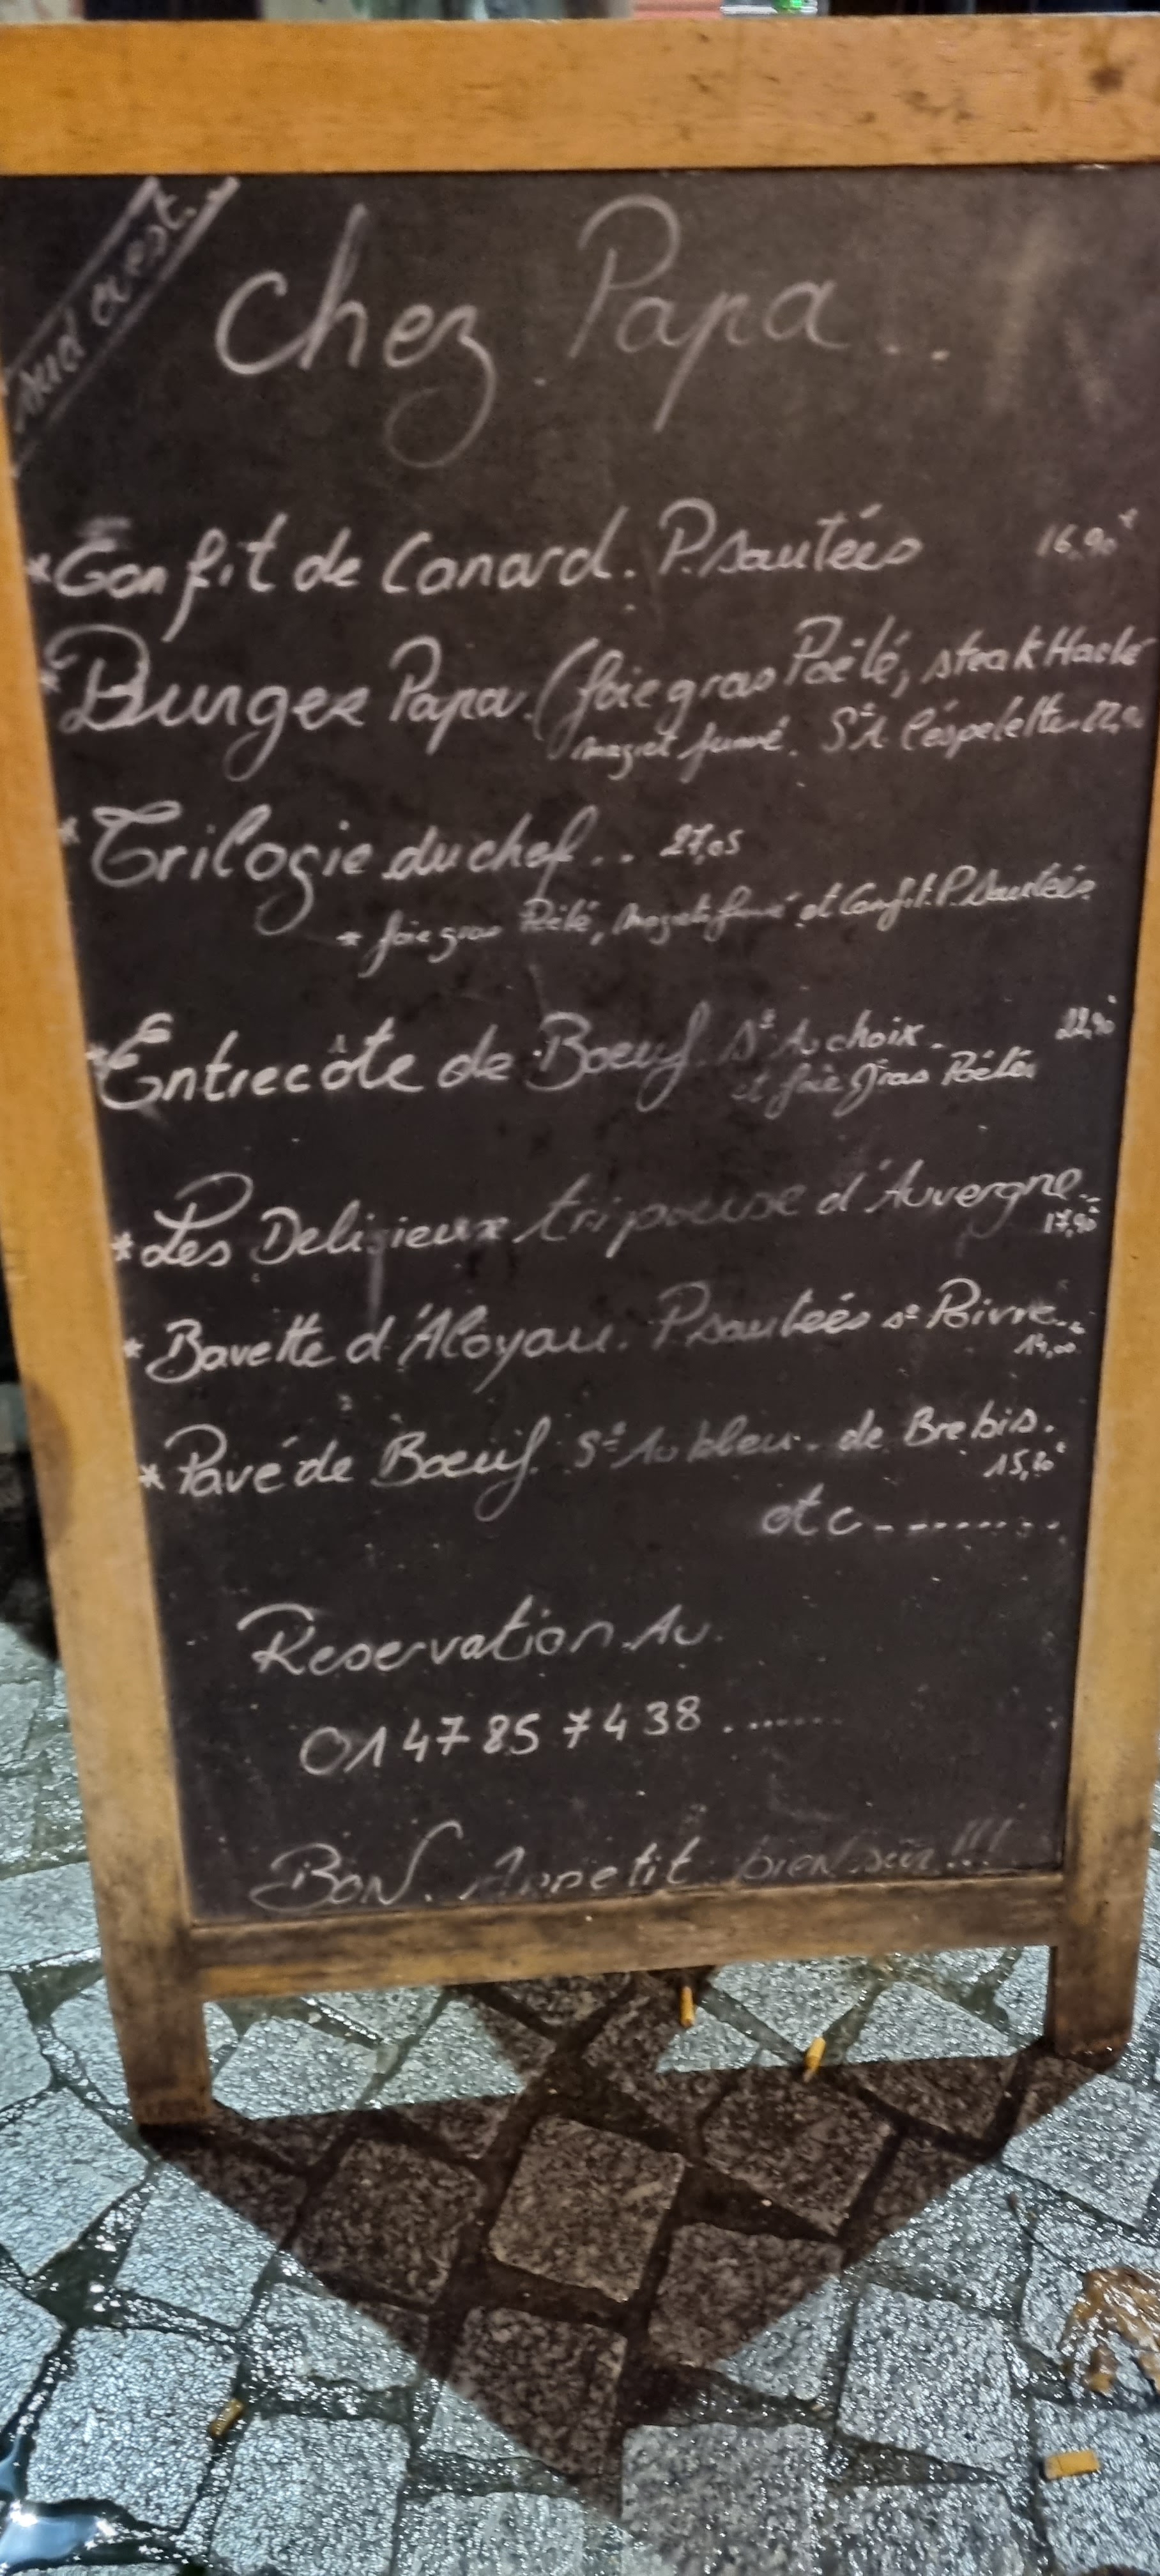 sud ouest
Chez Papa...
* Confit de Canard. P. Sautées 16,90 €
* Burger Papa. (foie gras Poêlé, steak Haché
magret fumé. Sce à l'éspelette. 22,90
* Trilogie du chef... 27,05
* foie gras Poêlé, Magret fumé et Confit. P. Sautées
* Entrecôte de Boeuf. Sce Au choix. 22,90
et foie gras Poêlé.
* Les Delizieux tripouse d'Auvergne.
17,90
* Bavette d'Aloyau. P sautées sce Poivre.
* Pavé de Boeuf. Sce Au bleu. de Brebis.
etc........
Reservation Au.
01 47 85 74 38........
BON. Appetit bien sur!!!